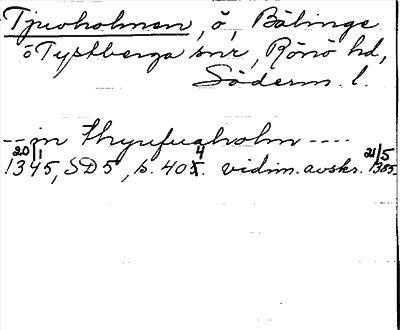 Tjuvholmen, ö, Bälinge
o Tystberga snr, Rönö hd,
Söderm. l.
--- in thyufuaholm ----
20/1 1345, SD 5, s. 404. vidim. avskr. 21/5 1385.